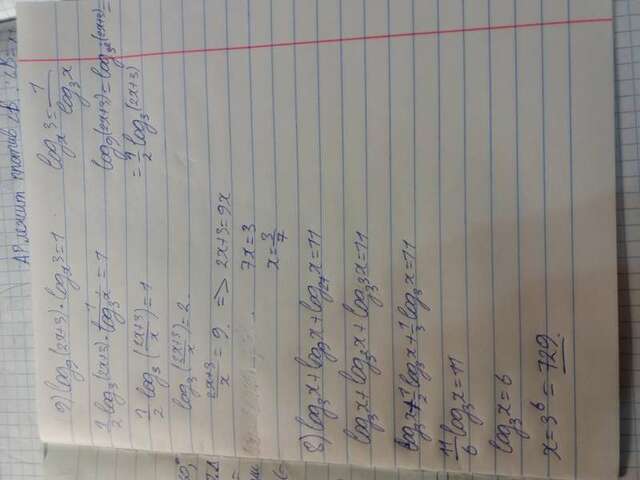 АР лежит против ∠B
9) log₉(2x+3)·logₓ3=1
logₓ3=1/log₃x
1/2 log₃(2x+3)·1/log₃x=1
log₉(2x+3)=log₃²(2x+3)=
=1/2 log₃(2x+3)
1/2 log₃((2x+3)/x)=1
log₃((2x+3)/x)=2.
(2x+3)/x=9. => 2x+3=9x
7x=3
x=3/7
8) log₃x+log₉x+log₂₇x=11
log₃x+log₃²x+log₃³x=11
log₃x+1/2 log₃x+1/3 log₃x=11
11/6 log₃x=11
log₃x=6
x=3⁶=729.